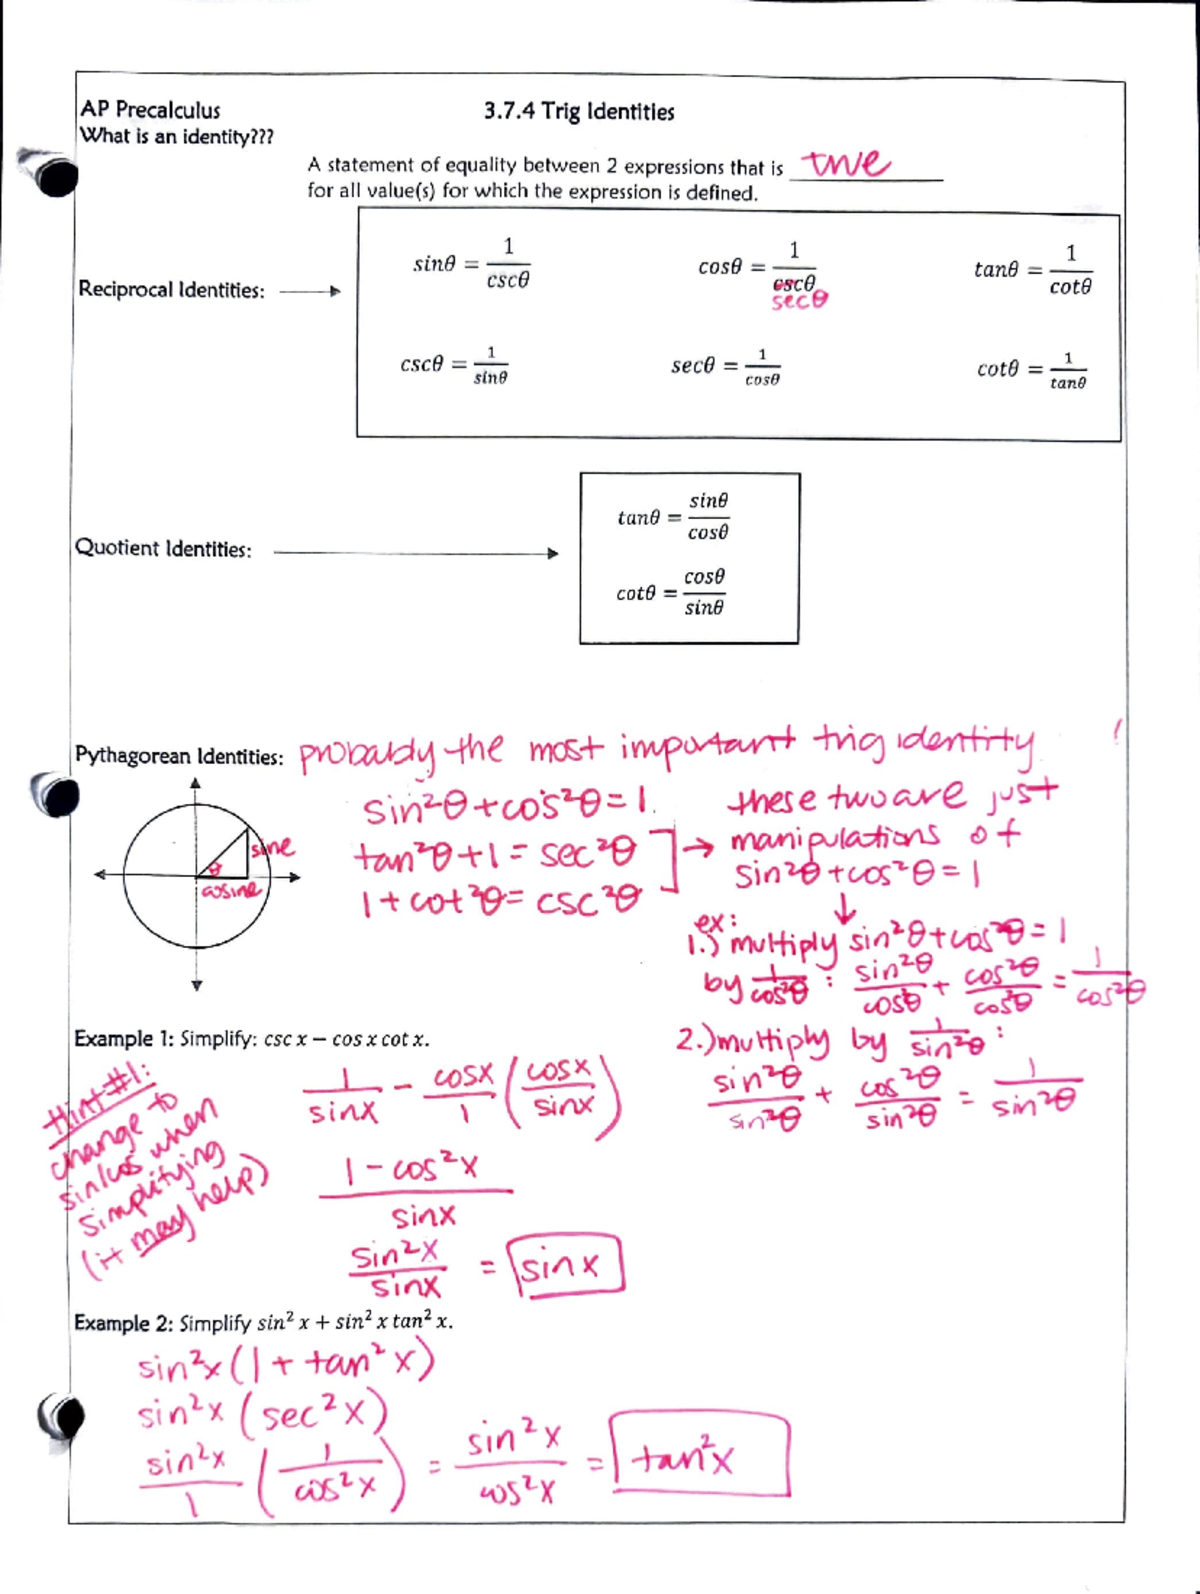 AP Precalculus
3.7.4 Trig Identities
What is an identity???
A statement of equality between 2 expressions that is true
for all value(s) for which the expression is defined.
Reciprocal Identities:
sinθ = 1/cscθ
cosθ = 1/cscθ secθ
tanθ = 1/cotθ
cscθ = 1/sinθ
secθ = 1/cosθ
cotθ = 1/tanθ
Quotient Identities:
tanθ = sinθ/cosθ
cotθ = cosθ/sinθ
Pythagorean Identities: probably the most important trig identity !
sine
θ
cosine
sin²θ + cos²θ = 1.
tan²θ + 1 = sec²θ
1 + cot²θ = csc²θ
→ these two are just
manipulations of
sin²θ + cos²θ = 1
↓
ex:
1.) multiply sin²θ + cos²θ = 1
by 1/cos²θ : sin²θ/cos²θ + cos²θ/cos²θ = 1/cos²θ
2.) multiply by 1/sin²θ :
sin²θ/sin²θ + cos²θ/sin²θ = 1/sin²θ
Example 1: Simplify: csc x − cos x cot x.
Hint #1:
change to
sin/cos when
simplifying
(it may help)
1/sinx − cosx/1 (cosx/sinx)
1 − cos²x / sinx
sin²x/sinx = sinx
Example 2: Simplify sin² x + sin² x tan² x.
sin²x (1 + tan²x)
sin²x (sec²x)
sin²x/1 (1/cos²x) = sin²x/cos²x = tan²x